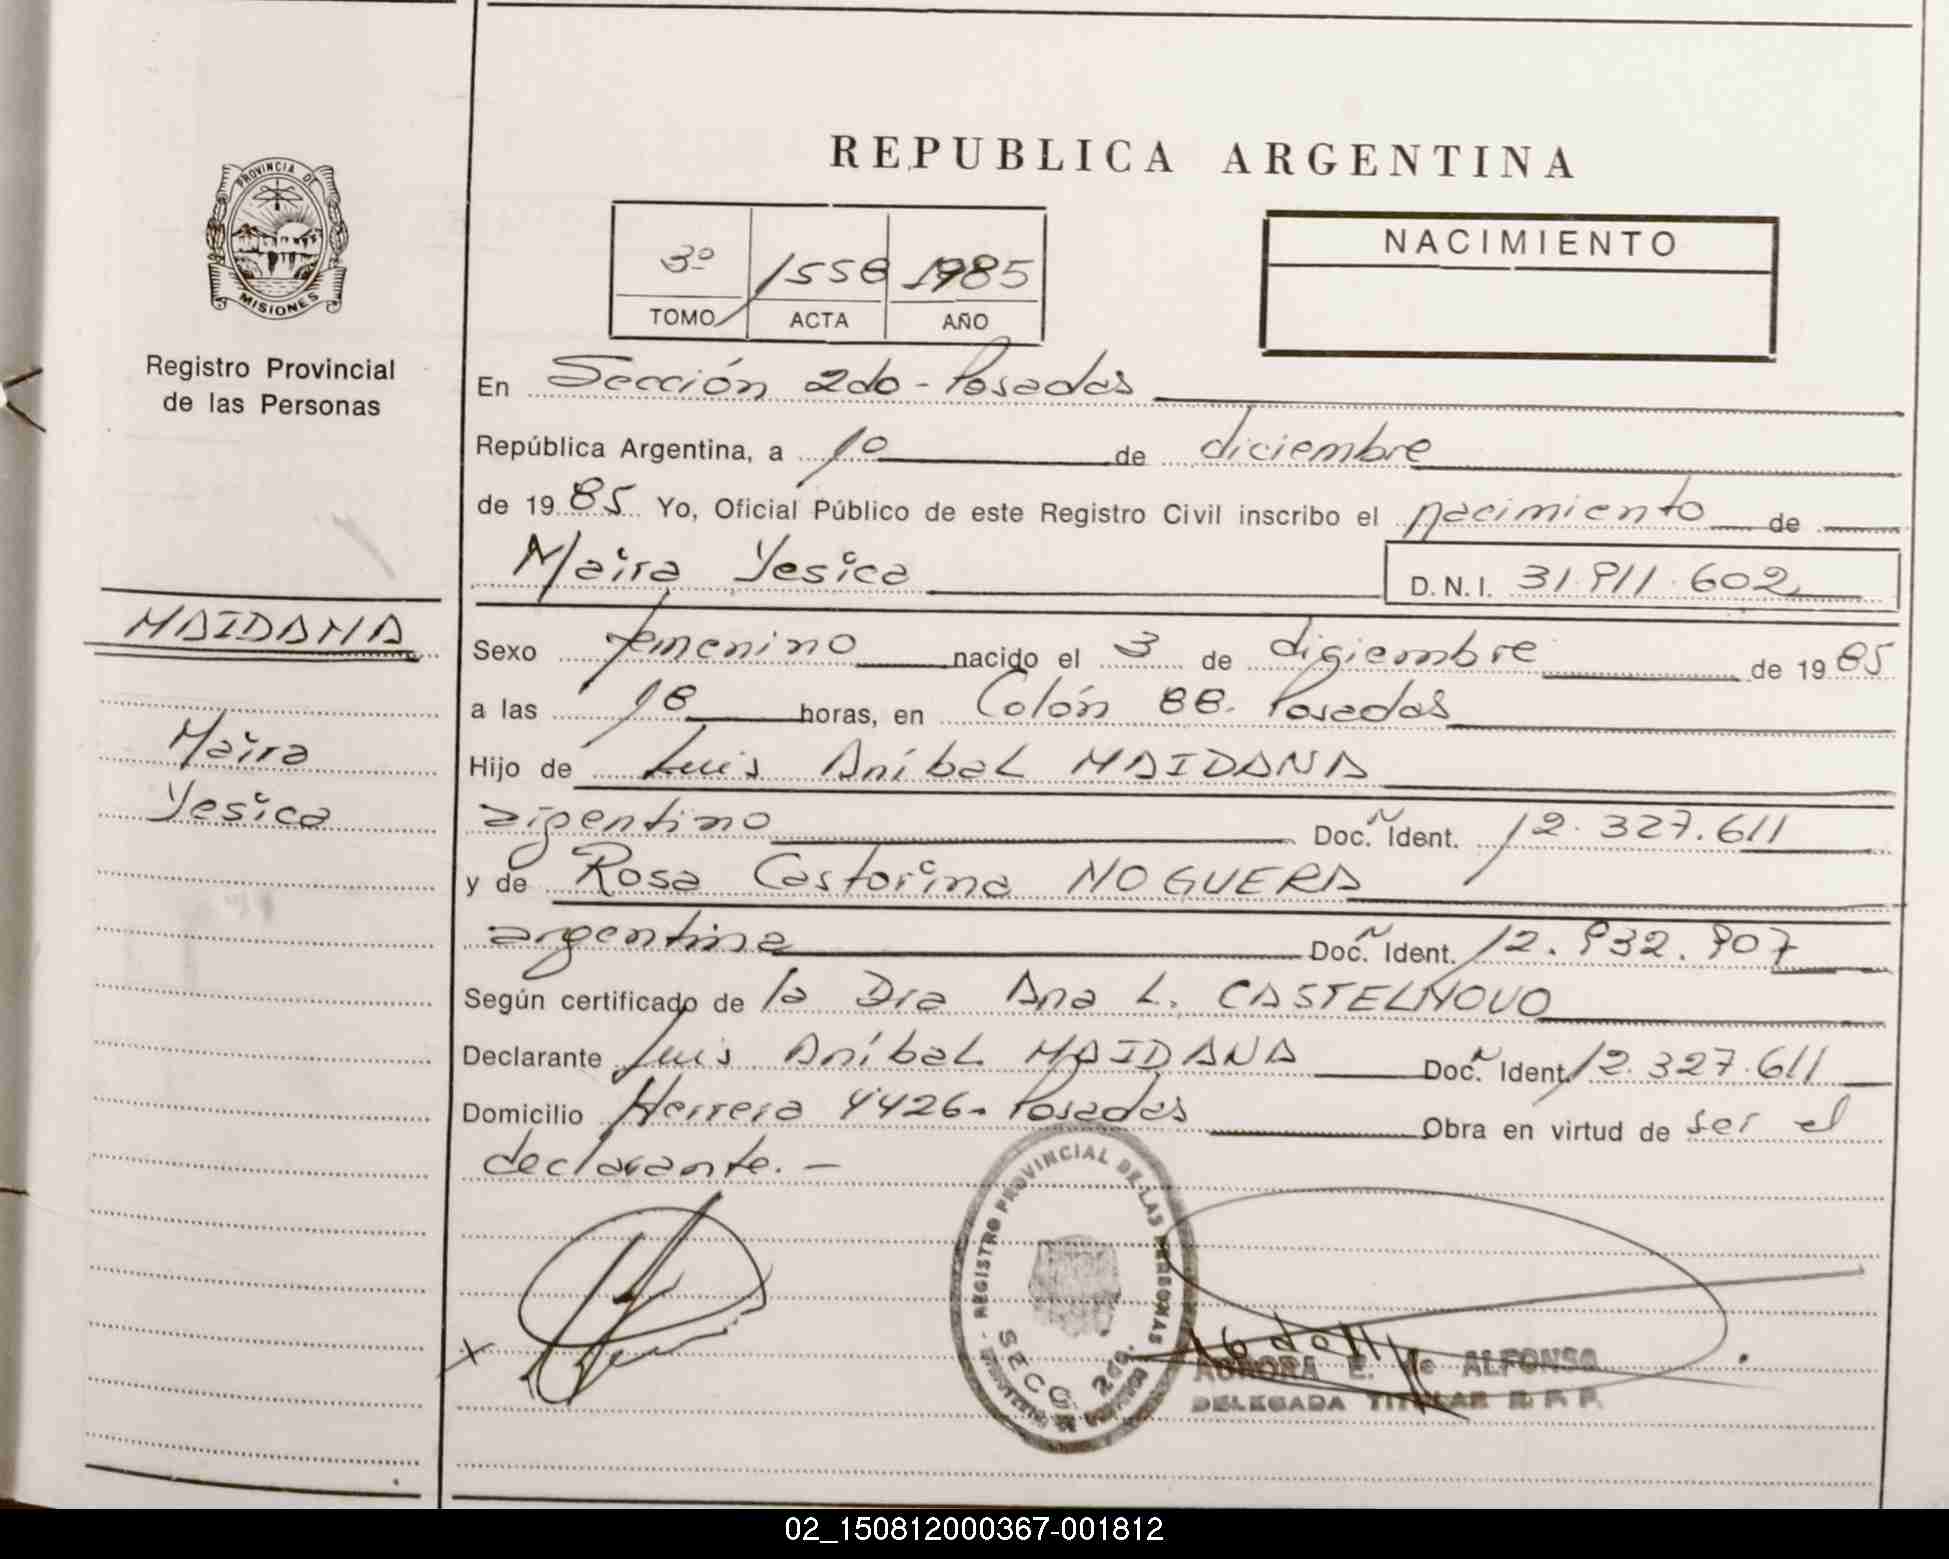 REPUBLICA ARGENTINA
PROVINCIA DE
MISIONES
Registro Provincial
de las Personas
3º 1558 1985
TOMO ACTA AÑO
NACIMIENTO
En Sección 2do - Posadas
República Argentina, a 10 de diciembre
de 1985 Yo, Oficial Público de este Registro Civil inscribo el nacimiento de
Maira Yesica D.N.I. 31.911.602
MAIDANA
Maira
Yesica
Sexo femenino nacido el 3 de digiembre de 1985
a las 18 horas, en Colón 88. Posadas
Hijo de Luis Aníbal MAIDANA
argentino Doc. Ident. 12.327.611
y de Rosa Castorina NOGUERA
argentina Doc. Ident. 12.932.907
Según certificado de la Dra Ana L. CASTELNOVO
Declarante Luis Aníbal MAIDANA Doc. Ident. 12.327.611
Domicilio Herrera 4426- Posadas Obra en virtud de ser el
declarante. -
REGISTRO PROVINCIAL DE LAS PERSONAS
SECC. 2da.
AURORA E. de ALFONSO
DELEGADA TITULAR R. P. P.
02_150812000367-001812